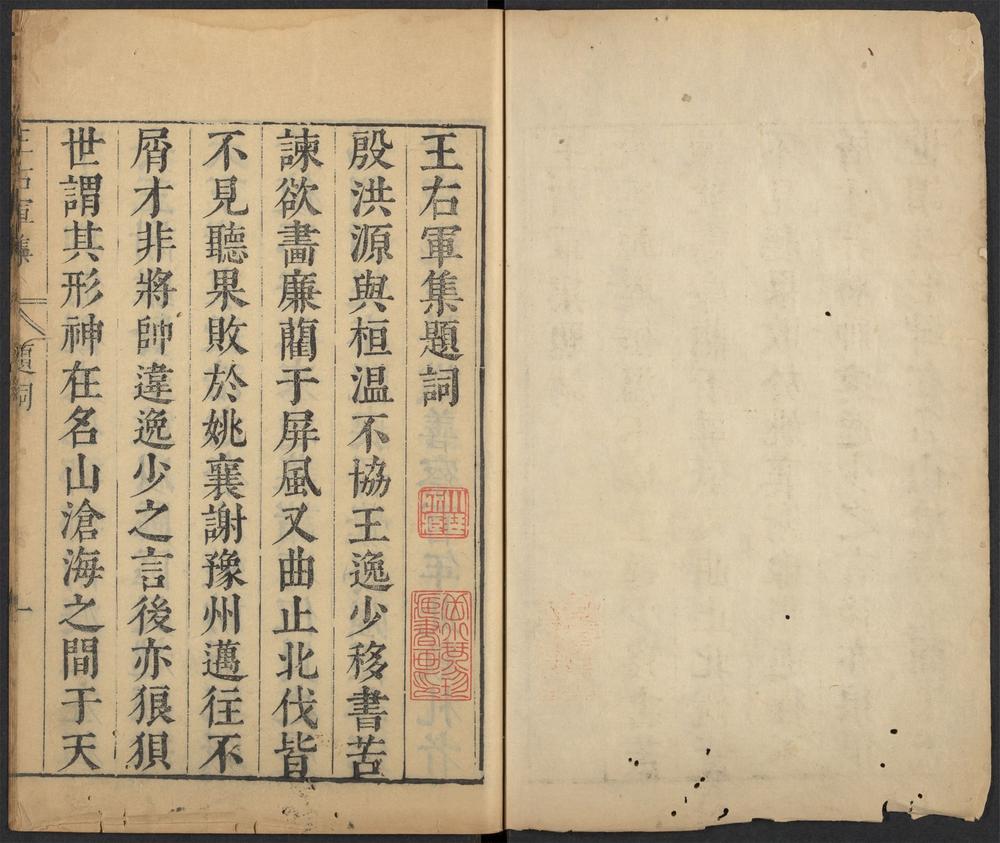 王右軍集題詞
殷洪源與桓温不協王逸少移書苦
諫欲畵廉藺于屏風又曲止北伐皆
不見聽果敗於姚襄謝豫州邁往不
屑才非將帥違逸少之言後亦狼狽
世謂其形神在名山滄海之間于天
題詞
一